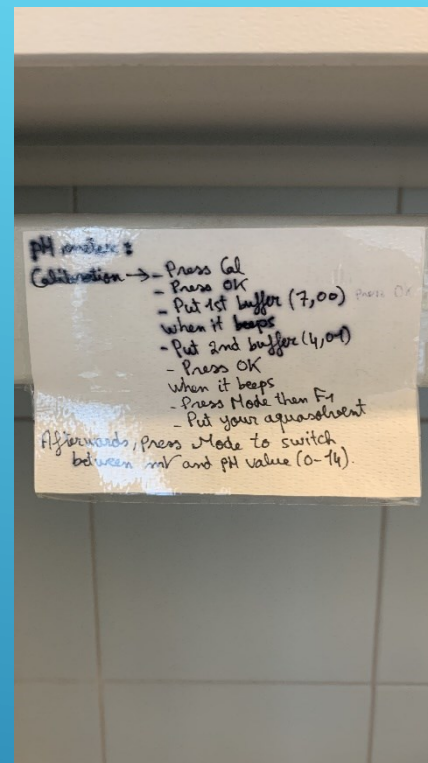 pH meter:
Calibration → - Press Cal
- Press OK
- Put 1st buffer (7,00) press OK
when it beeps
- Put 2nd buffer (4,01)
- Press OK
when it beeps
- Press Mode then F1
- Put your aquasolvent
Afterwards, press Mode to switch
between mV and pH value (0-14).